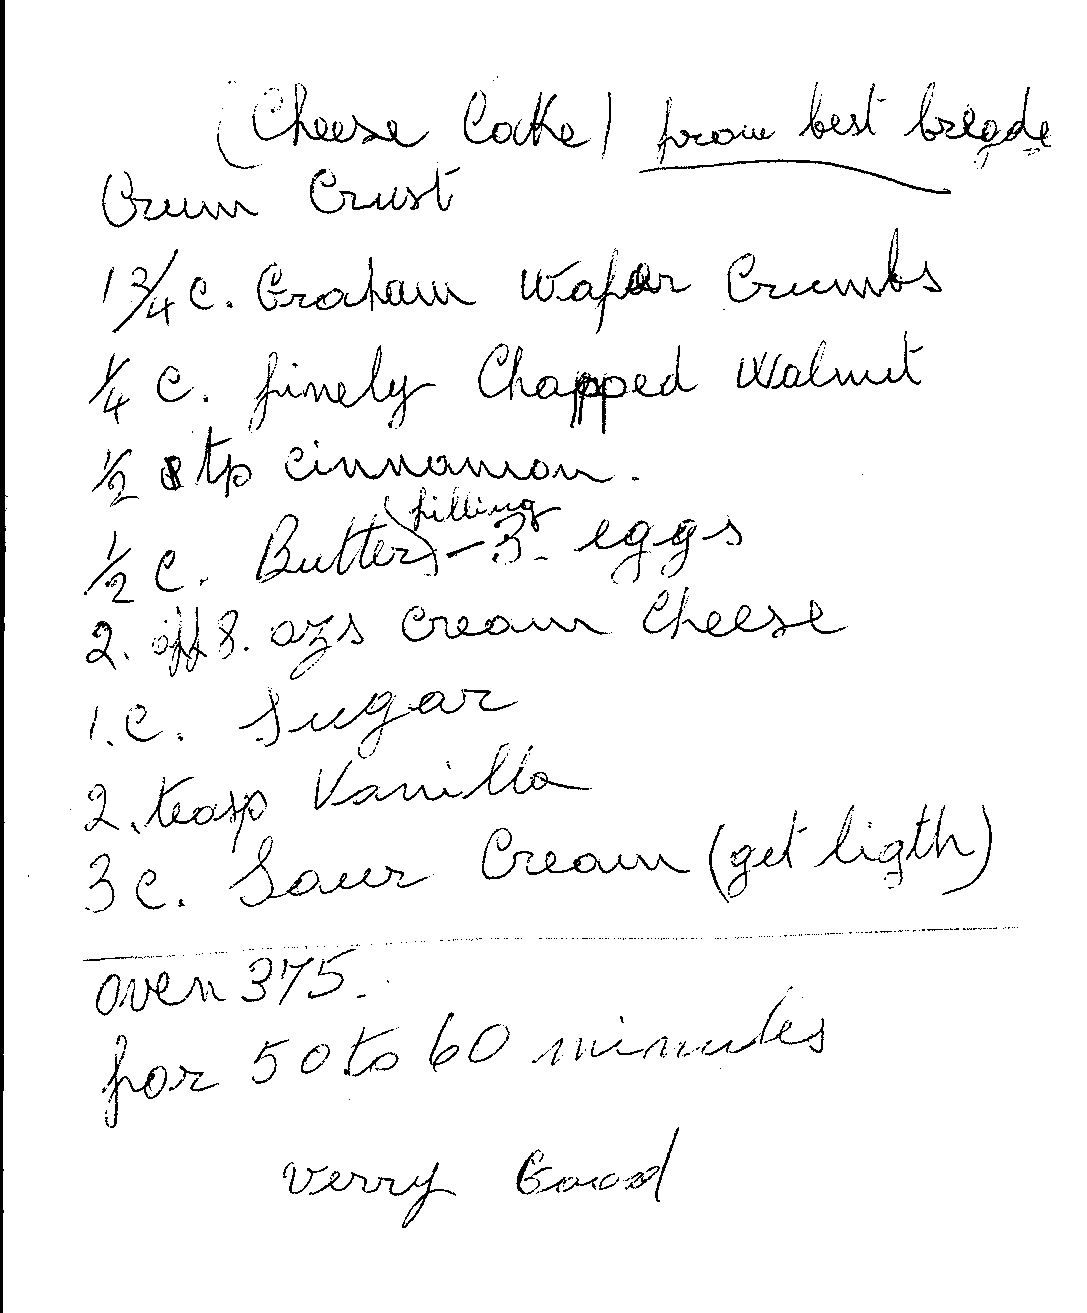 (Cheese Cake) from best bregde
Crum Crust
1 3/4 c. Graham Wafer Crumbs
1/4 c. finely Chopped Walnut
1/2 tp cinnamon.
1/2 c. Butter) filling - 3. eggs
2. off 8. ozs cream Cheese
1. c. Sugar
2. teasp Vanilla
3 c. Sour Cream (get ligth)
oven 375.
for 50 to 60 minutes
verry Good